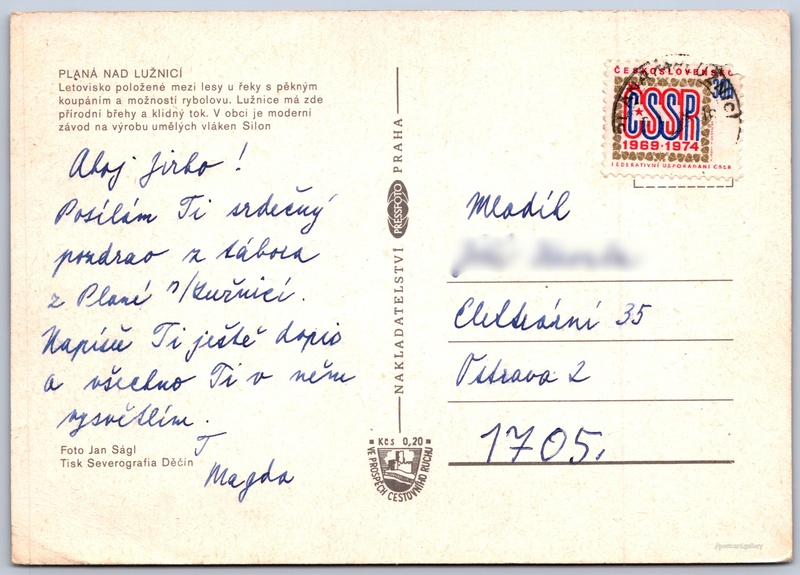 PLANÁ NAD LUŽNICÍ
Letovisko položené mezi lesy u řeky s pěkným
koupáním a možností rybolovu. Lužnice má zde
přírodní břehy a klidný tok. V obci je moderní
závod na výrobu umělých vláken Silon
Ahoj Jirko !
Posílám Ti srdečný
pozdrav z tábora
z Plané n/Lužnicí.
Napíšu Ti ještě dopis
a všechno Ti v něm
vysvětlím.
T
Magda
Foto Jan Ságl
Tisk Severografia Děčín
NAKLADATELSTVÍ PRESSFOTO PRAHA
Kčs 0,20
VE PROSPĚCH CESTOVNÍHO RUCHU
ČESKOSLOVENSKO
30h
ČSSR
1969·1974
FEDERATIVNÍ USPOŘÁDÁNÍ ČSSR
Mladík
Elektrární 35
Ostrava 2
1705.